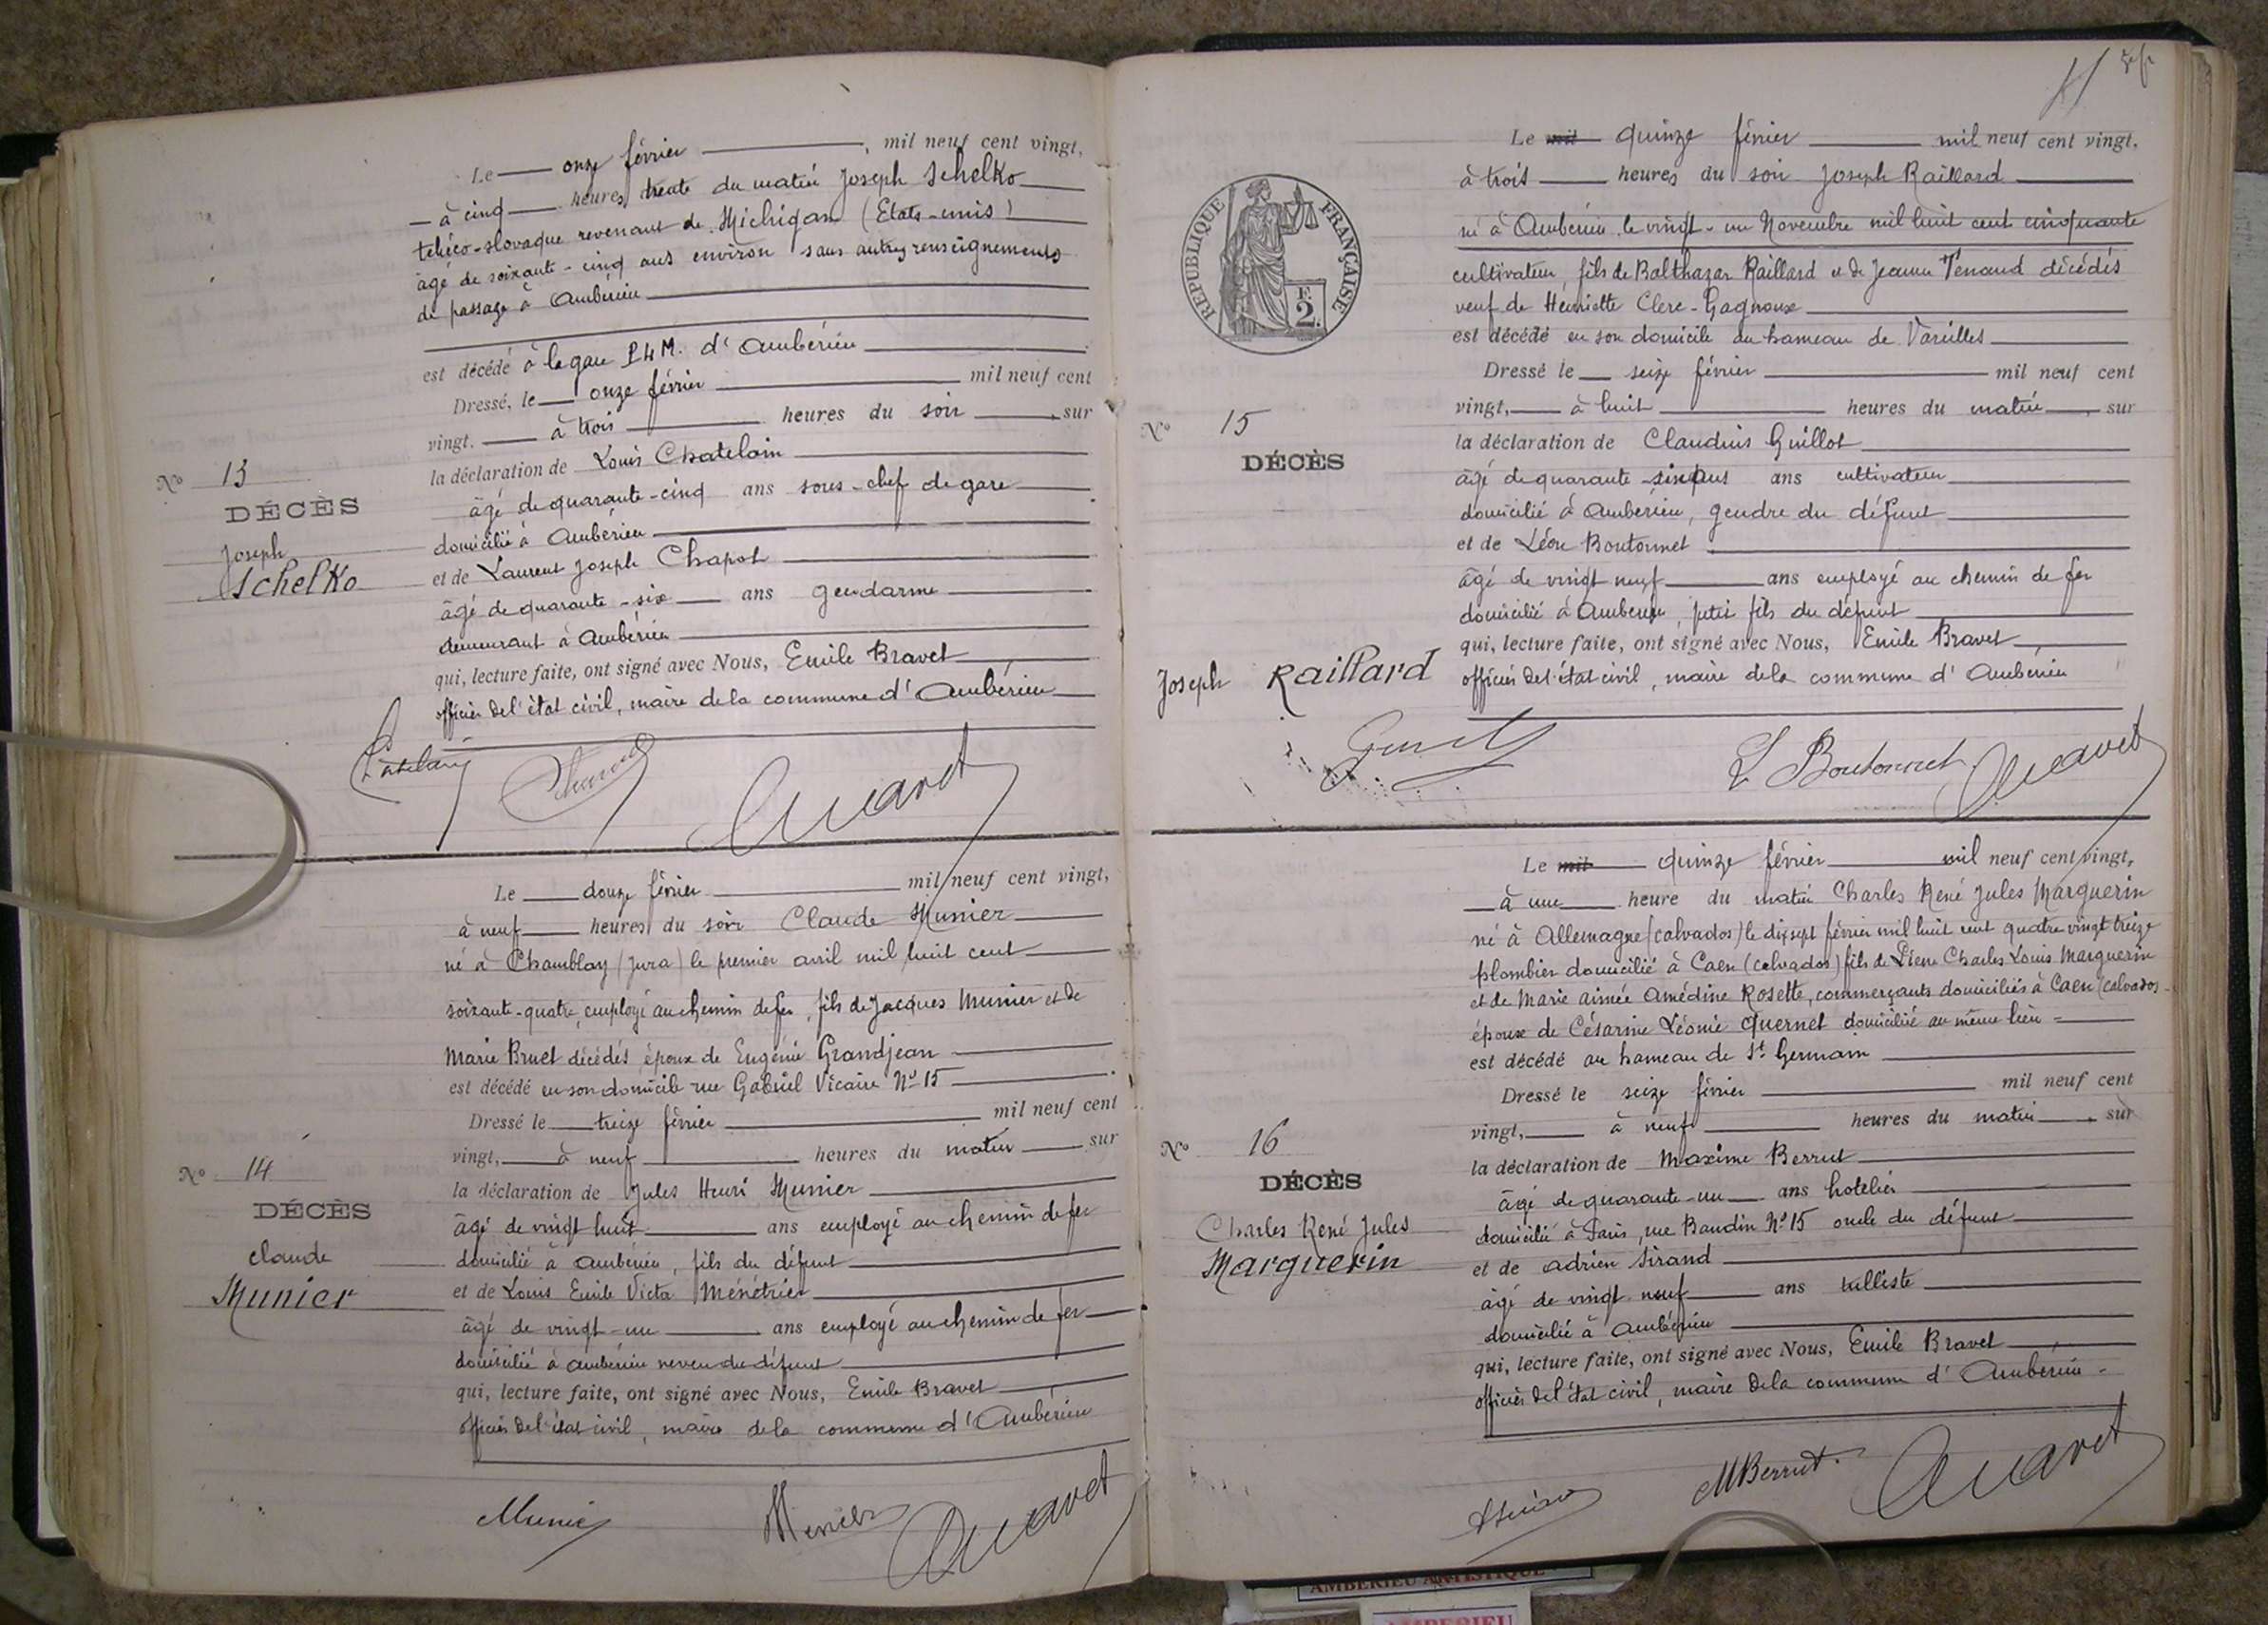 Le onze février, mil neuf cent vingt,
à cinq heures trente du matin Joseph Schelko
tchéco-slovaque revenant de Michigan (Etats-unis)
âgé de soixante-cinq ans environ sans autres renseignements
de passage à Ambérieu
est décédé à la gare PLM. d'Ambérieu
Dressé, le onze février mil neuf cent
vingt. à trois heures du soir, sur
la déclaration de Louis Chatelain
âgé de quarante-cinq ans sous-chef de gare
domicilié à Ambérieu
et de Laurent Joseph Chapot
âgé de quarante-six ans gendarme
demeurant à Ambérieu
qui, lecture faite, ont signé avec Nous, Emile Bravet
officier de l'état civil, maire de la commune d'Ambérieu
No 13
DÉCÈS
Joseph
Schelko
Le douze février mil neuf cent vingt,
à neuf heures du soir Claude Munier
né à Chamblay (Jura) le premier avril mil huit cent
soixante-quatre, employé au chemin de fer, fils de Jacques Munier et de
Marie Bruet décédés, époux de Eugénie Grandjean
est décédé en son domicile rue Gabriel Vicaire No 15
Dressé le treize février mil neuf cent
vingt, à neuf heures du matin sur
la déclaration de Jules Henri Munier
âgé de vingt huit ans employé au chemin de fer
domicilié à Ambérieu, fils du défunt
et de Louis Emile Victa Ménétrier
âgé de vingt-un ans employé au chemin de fer
domicilié à Ambérieu neveu du défunt
qui, lecture faite, ont signé avec Nous, Emile Bravet
officier de l'état civil, maire de la commune d'Ambérieu
No 14
DÉCÈS
Claude
Munier
Munier
RÉPUBLIQUE FRANÇAISE
F.
2.
Le mil quinze février mil neuf cent vingt,
à trois heures du soir Joseph Raillard
né à Ambérieu le vingt-un Novembre mil huit cent cinquante
cultivateur, fils de Balthazar Raillard et de Jeanne Tenand décédés
veuf de Henriette Clerc-Gagnoux
est décédé en son domicile au hameau de Vareilles
Dressé le seize février mil neuf cent
vingt, à huit heures du matin, sur
la déclaration de Claudius Guillot
âgé de quarante ans cultivateur
domicilié à Ambérieu, gendre du défunt
et de Léon Boutonnet
âgé de vingt neuf ans employé au chemin de fer
domicilié à Ambérieu, petit fils du défunt
qui, lecture faite, ont signé avec Nous, Emile Bravet
officier de l'état civil, maire de la commune d'Ambérieu
No 15
DÉCÈS
Joseph Raillard
L Boutonnet
Le mil quinze février mil neuf cent vingt,
à une heure du matin Charles René Jules Marguerin
né à Allemagne (calvados) le dix sept février mil huit cent quatre vingt treize
plombier domicilié à Caen (calvados) fils de Pierre Charles Louis Marguerin
et de Marie aimée Amédine Rosette, commerçants domiciliés à Caen (calvados
époux de Césarine Léonie Quernet domiciliée au même lieu
est décédé au hameau de St Germain
Dressé le seize février mil neuf cent
vingt, à neuf heures du matin, sur
la déclaration de Maxime Berrut
âgé de quarante-un ans hotelier
domicilié à Paris, rue Baudin No 15 oncle du défunt
et de Adrien Sirand
âgé de vingt neuf ans tulliste
domicilié à Ambérieu
qui, lecture faite, ont signé avec Nous, Emile Bravet
officier de l'état civil, maire de la commune d'Ambérieu
No 16
DÉCÈS
Charles René Jules
Marguerin
MBerrut.
AMBERIEU ARTISTIQUE
AMBERIEU